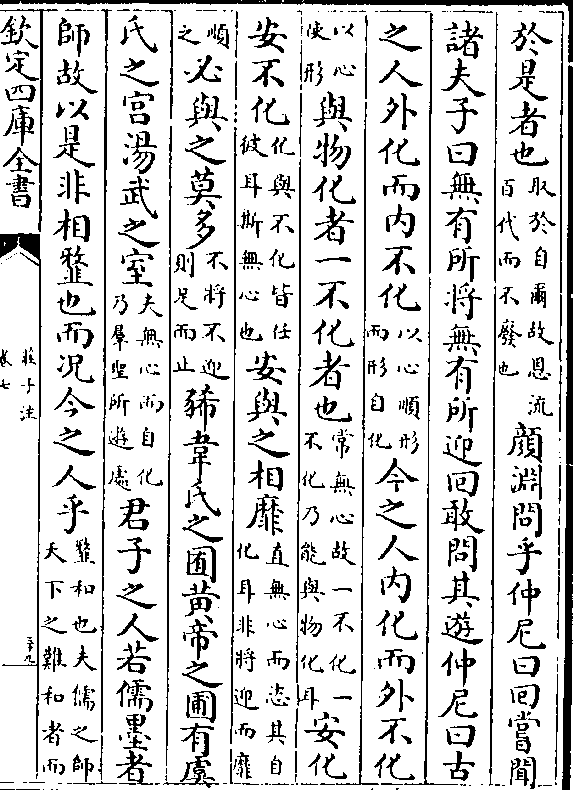 於是者也取於自爾故恩流百代而不廢也顔淵問乎仲尼曰回嘗聞
諸夫子曰無有所將無有所迎回敢問其遊仲尼曰古
之人外化而内不化以心順形而形自化今之人内化而外不化
以心使形與物化者一不化者也常無心故一不化一不化乃能與物化耳安化
安不化化與不化皆任彼耳斯無心也安與之相靡直無心而恣其自化耳非將迎而靡
順之必與之莫多不將不迎則足而止狶韋氏之囿黄帝之圃有虞
氏之宫湯武之室夫無心而自化乃羣聖所遊處君子之人若儒墨者
師故以是非相𩐋也而况今之人乎𩐋和也夫儒之師天下之難和者而
欽定四庫全書
莊子注
卷七